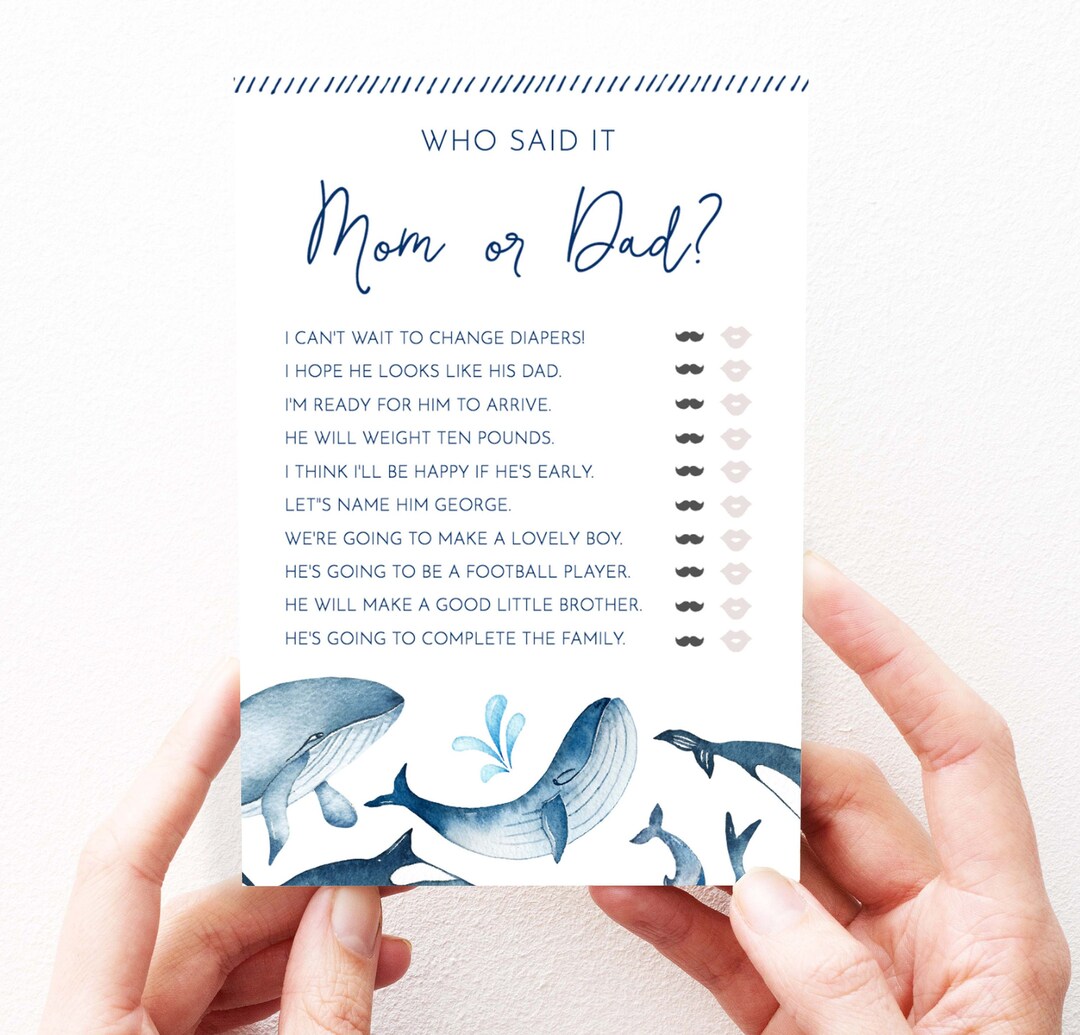 WHO SAID IT
Mom or Dad?
I CAN'T WAIT TO CHANGE DIAPERS!
I HOPE HE LOOKS LIKE HIS DAD.
I'M READY FOR HIM TO ARRIVE.
HE WILL WEIGHT TEN POUNDS.
I THINK I'LL BE HAPPY IF HE'S EARLY.
LET"S NAME HIM GEORGE.
WE'RE GOING TO MAKE A LOVELY BOY.
HE'S GOING TO BE A FOOTBALL PLAYER.
HE WILL MAKE A GOOD LITTLE BROTHER.
HE'S GOING TO COMPLETE THE FAMILY.